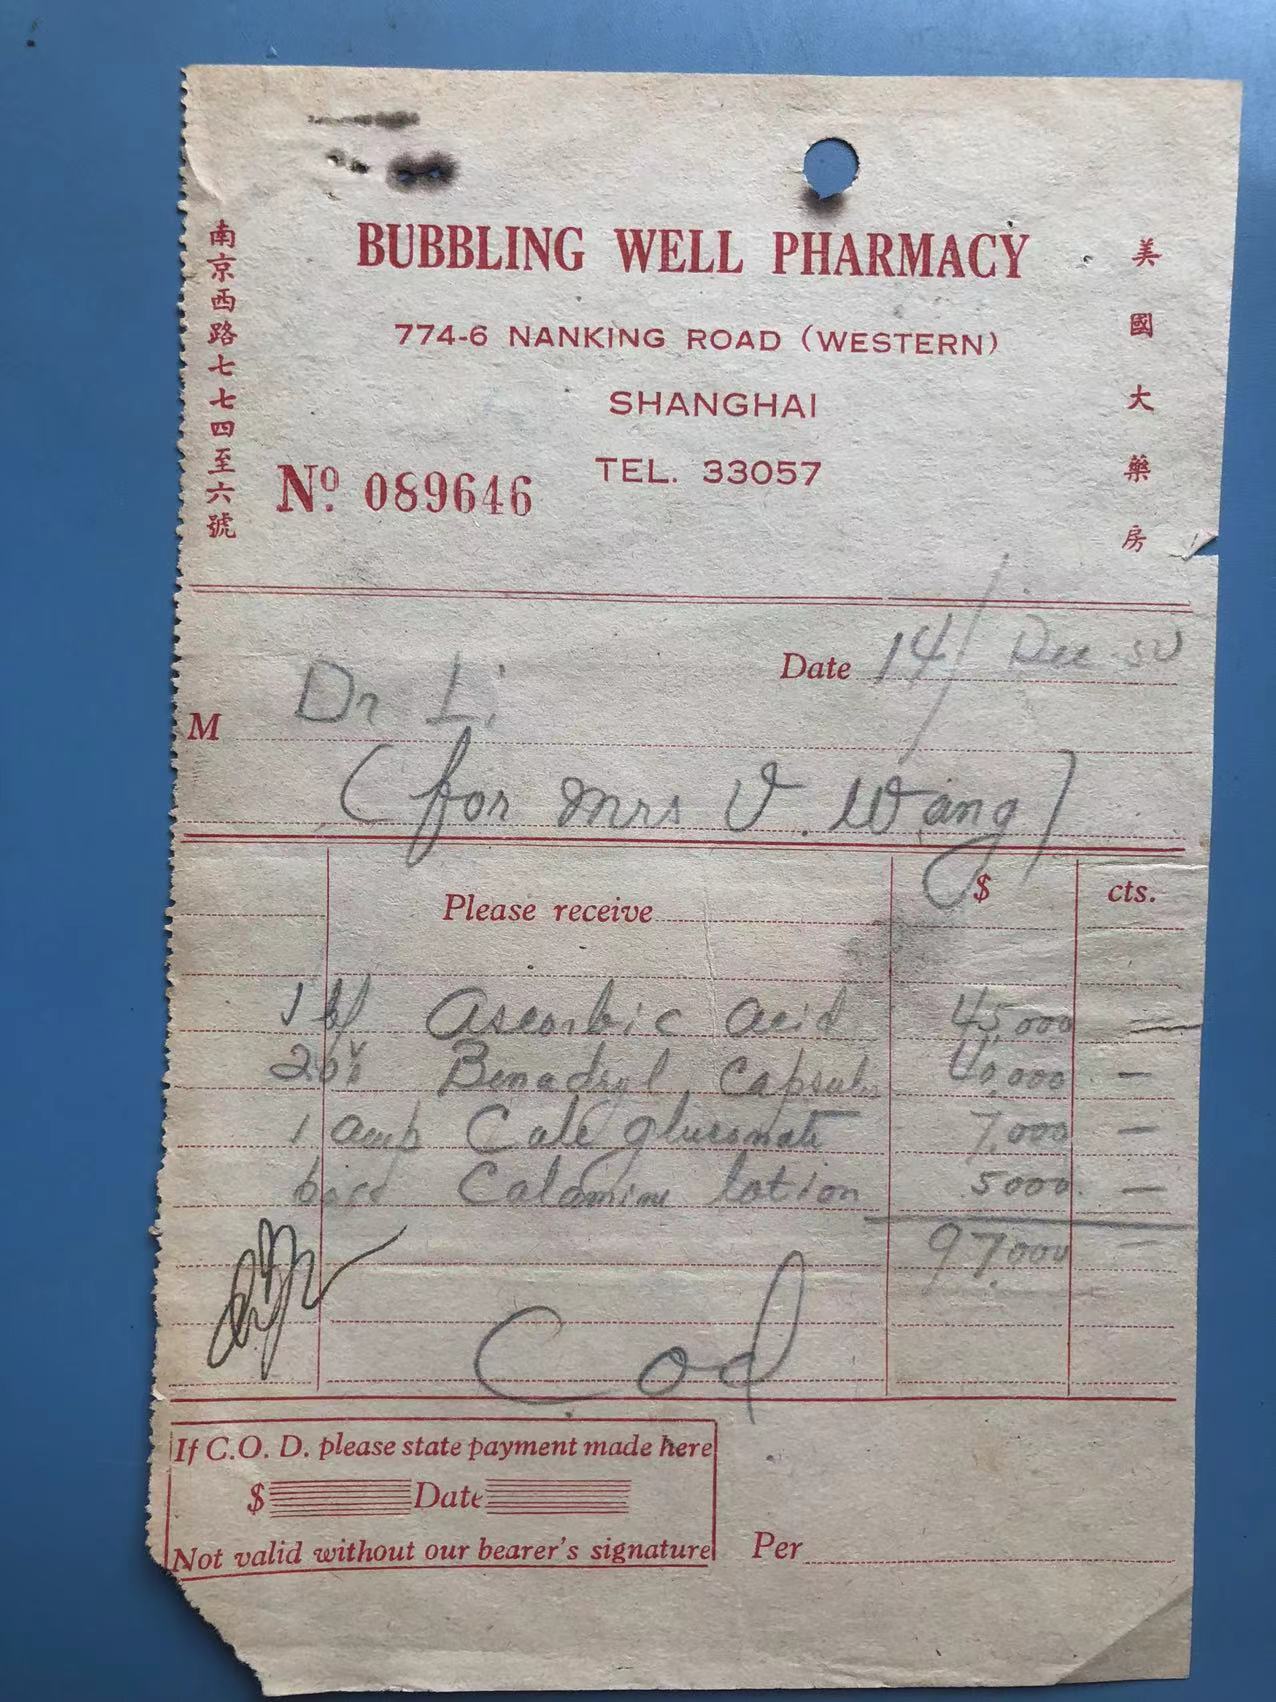 BUBBLING WELL PHARMACY
774-6 NANKING ROAD (WESTERN)
SHANGHAI
TEL. 33057
Nº 089646
南京西路七七四至六號
美國大藥房
Date 14/Dec 50
M Dr Li
(for Mrs V. Wang)
Please receive $ cts.
1 btl Ascorbic acid 45,000 —
20 Benadryl Capsules 40,000 —
1 amp Calc gluconate 7,000 —
Calamine lotion 5000 —
97,000 —
Cod
If C.O.D. please state payment made here
$ Date
Not valid without our bearer's signature
Per